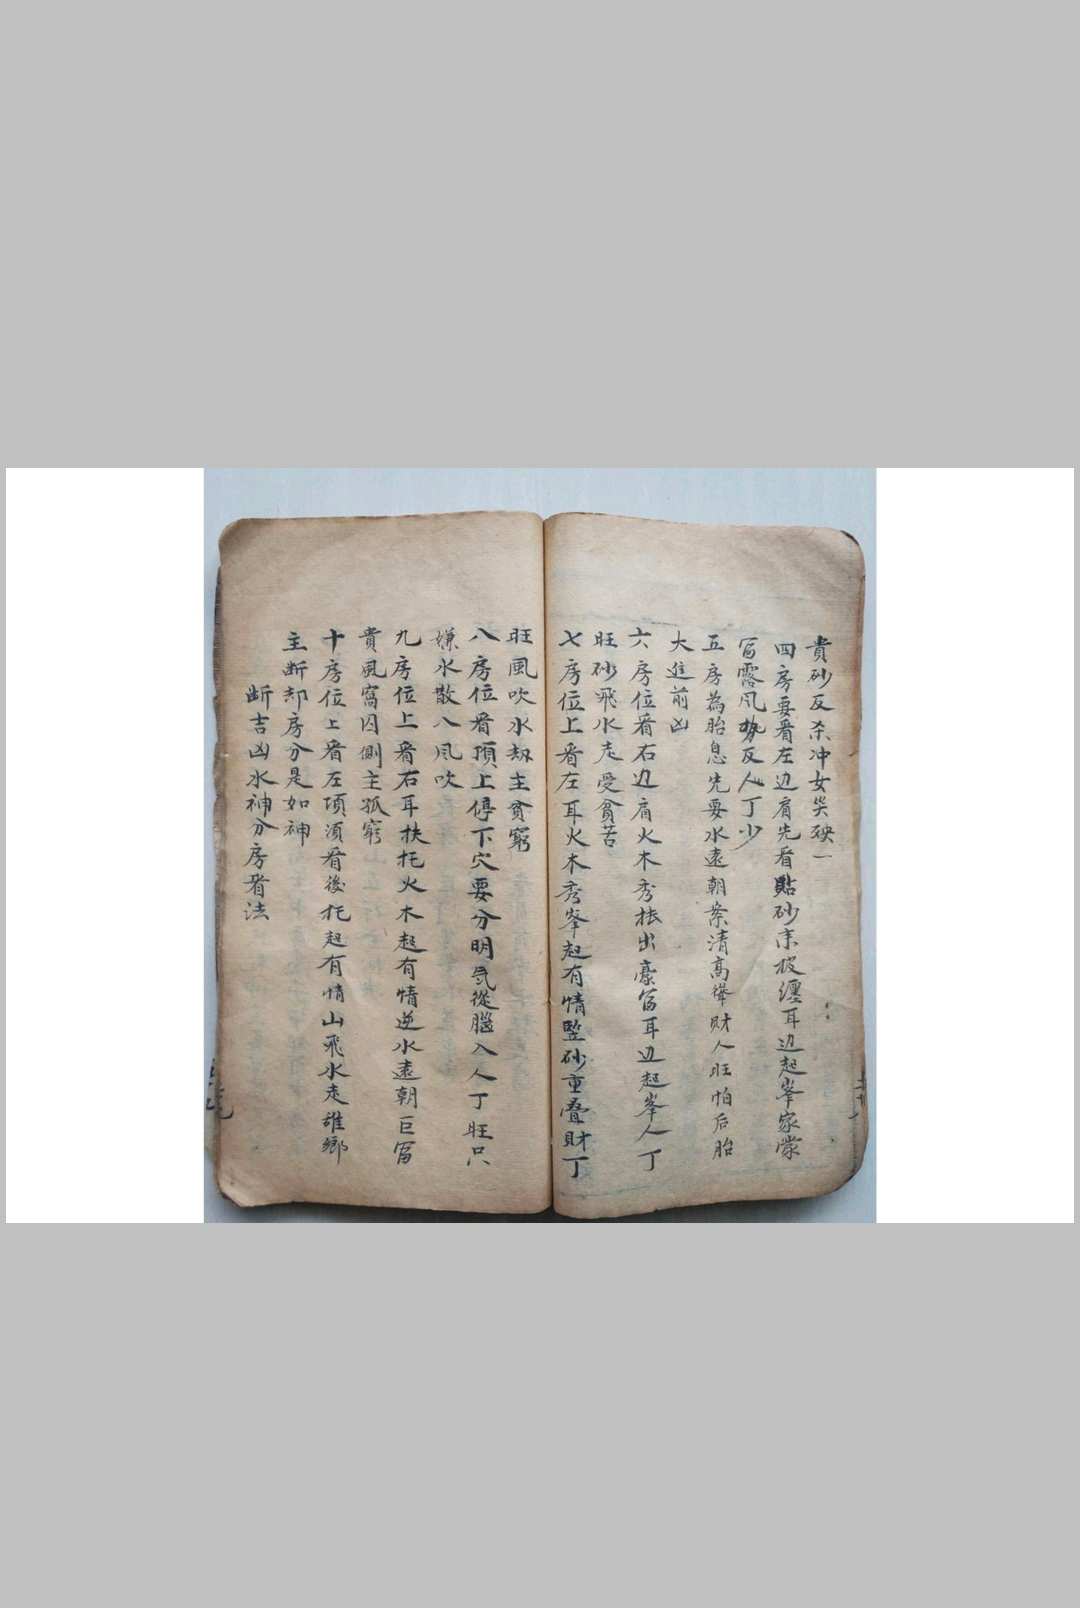 貴砂反杀冲女哭殃一
四房要看左边肩先看貼砂来被纏耳边起峯家豪
富露风势反人丁少
五房為胎息先要水遠朝案清高举財人旺怕后胎
大進前凶
六房位看右边肩火木秀捘出豪富耳边起峯人丁
旺砂飛水走受貧苦
七房位上看左耳火木秀峯起有情監砂重叠財丁
旺風吹水刼主貧窮
八房位看頂上停下穴要分明気從腦入人丁旺只
嫌水散八风吹
九房位上看右耳扶托火木起有情逆水遠朝巨富
貴風窩囚側主孤窮
十房位上看左項須看後托起有情山飛水走離鄉
主断却房分是如神
断吉凶水神分房看法